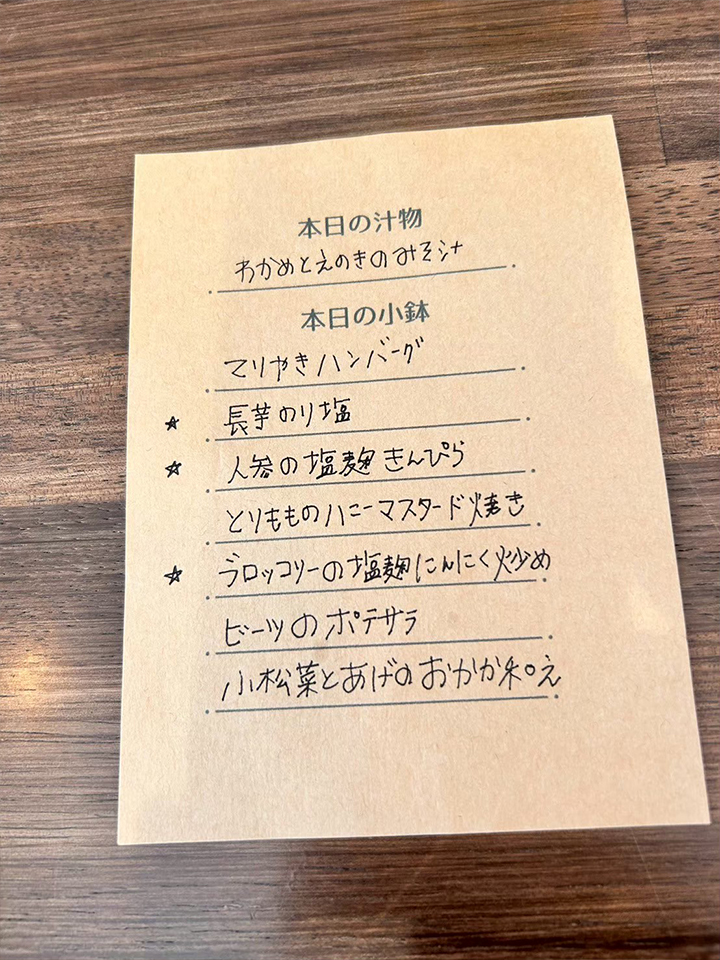 本日の汁物
わかめとえのきのみそ汁
本日の小鉢
てりやきハンバーグ
☆ 長芋のり塩
☆ 人参の塩麹きんぴら
とりもものハニーマスタード焼き
☆ ブロッコリーの塩麹にんにく炒め
ビーツのポテサラ
小松菜とあげのおかか和え